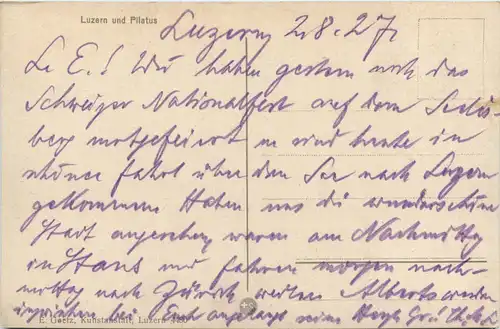 Luzern und Pilatus
Luzern 2.8.27.
L. E.! Wir haben gestern noch das
Schweizer Nationalfest auf dem Seelis-
berg mitgefeiert u sind heute in
schöner Fahrt über den See nach Luzern
gekommen Haben uns die wunderschöne
Stadt angesehen, waren am Nachmittag
in Stans und fahren morgen nach-
mittag nach Zürich werden Albertswerden
bei Euch angelangt sein Herzl. Grüße
E. Goetz, Kunstanstalt, Luzern